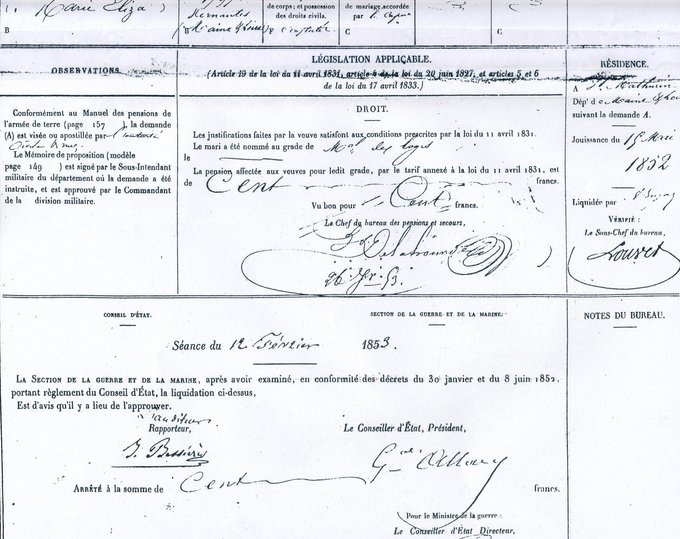 Marie Eliza
de corps; et possession
des droits civils.
de mariage, accordée
B
C
C
OBSERVATIONS.
LÉGISLATION APPLICABLE.
(Article 19 de la loi du 11 avril 1831, article 6 de la loi du 20 juin 1827, et articles 5 et 6
de la loi du 17 avril 1833.)
RÉSIDENCE.
A St Mathurin
Dép.t de Maine & Loire
suivant la demande A.
Jouissance du 15 Mai
1852
Liquidée par
VÉRIFIÉ :
Le Sous-Chef du bureau,
Louvet
Conformément au Manuel des pensions de
l'armée de terre (page 157 ), la demande
(A) est visée ou apostillée par l'autorité
Le Mémoire de proposition (modèle
page 149 ) est signé par le Sous-Intendant
militaire du département où la demande a
été instruite, et est approuvé par le Commandant
de la division militaire.
DROIT.
Les justifications faites par la veuve satisfont aux conditions prescrites par la loi du 11 avril 1831.
Le mari a été nommé au grade de Mal des logis
le
La pension affectée aux veuves pour ledit grade, par le tarif annexé à la loi du 11 avril 1831, est
de Cent francs.
Vu bon pour Cent francs.
Le Chef du bureau des pensions et secours,
CONSEIL D'ÉTAT.
SECTION DE LA GUERRE ET DE LA MARINE.
Séance du 12 Février 1853.
LA SECTION DE LA GUERRE ET DE LA MARINE, après avoir examiné, en conformité des décrets du 30 janvier et du 8 juin 1852,
portant règlement du Conseil d'État, la liquidation ci-dessus,
Est d'avis qu'il y a lieu de l'approuver.
auditeur
Rapporteur,
Le Conseiller d'État, Président,
J. Bessières
Gal Allouv
ARRÊTÉ à la somme de Cent francs.
Pour le Ministre de la guerre :
Le Conseiller d'État Directeur,
NOTES DU BUREAU.